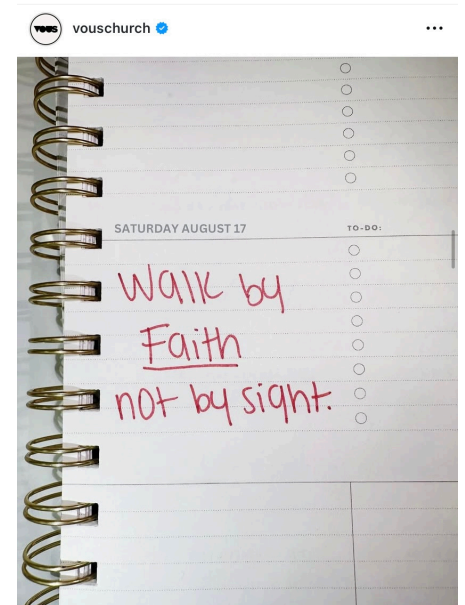 VOUS
vouschurch
SATURDAY AUGUST 17
TO-DO:
Walk by
Faith
not by sight.